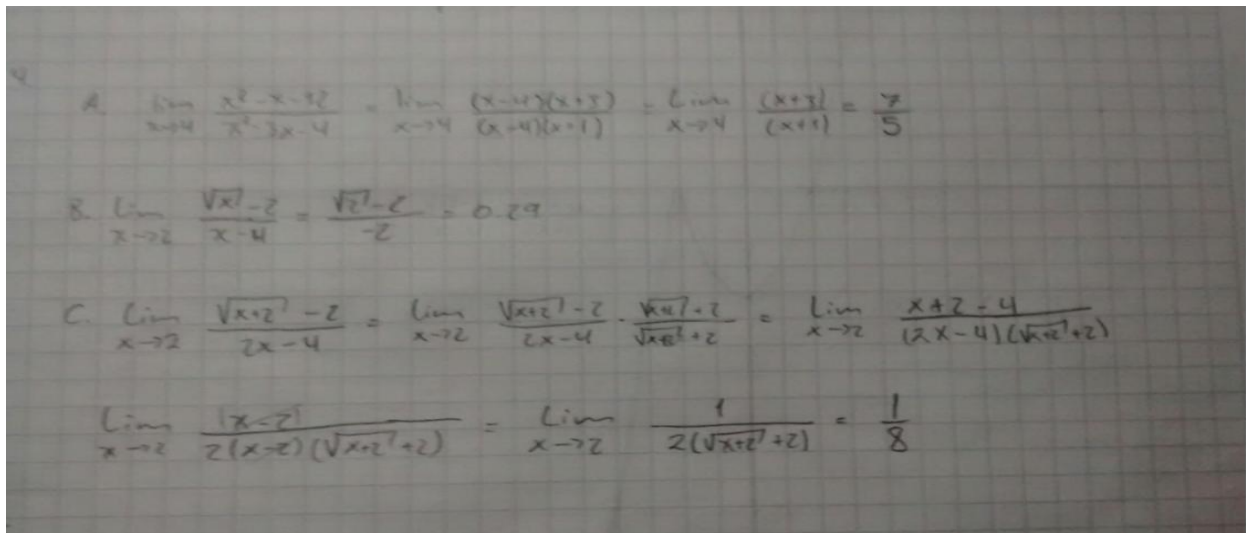 A. lim x→4 (x² - x - 12)/(x² - 3x - 4) = lim x→4 ((x-4)(x+3))/((x-4)(x+1)) = Lim x→4 (x+3)/(x+1) = 7/5
B. Lim x→2 (√x - 2)/(x - 4) = (√2 - 2)/(-2) = 0.29
C. Lim x→2 (√(x+2) - 2)/(2x - 4) = Lim x→2 (√(x+2) - 2)/(2x - 4) · (√(x+2) + 2)/(√(x+2) + 2) = Lim x→2 (x + 2 - 4)/((2x - 4)(√(x+2) + 2))
Lim x→2 (x - 2)/(2(x-2)(√(x+2) + 2)) = Lim x→2 1/(2(√(x+2) + 2)) = 1/8